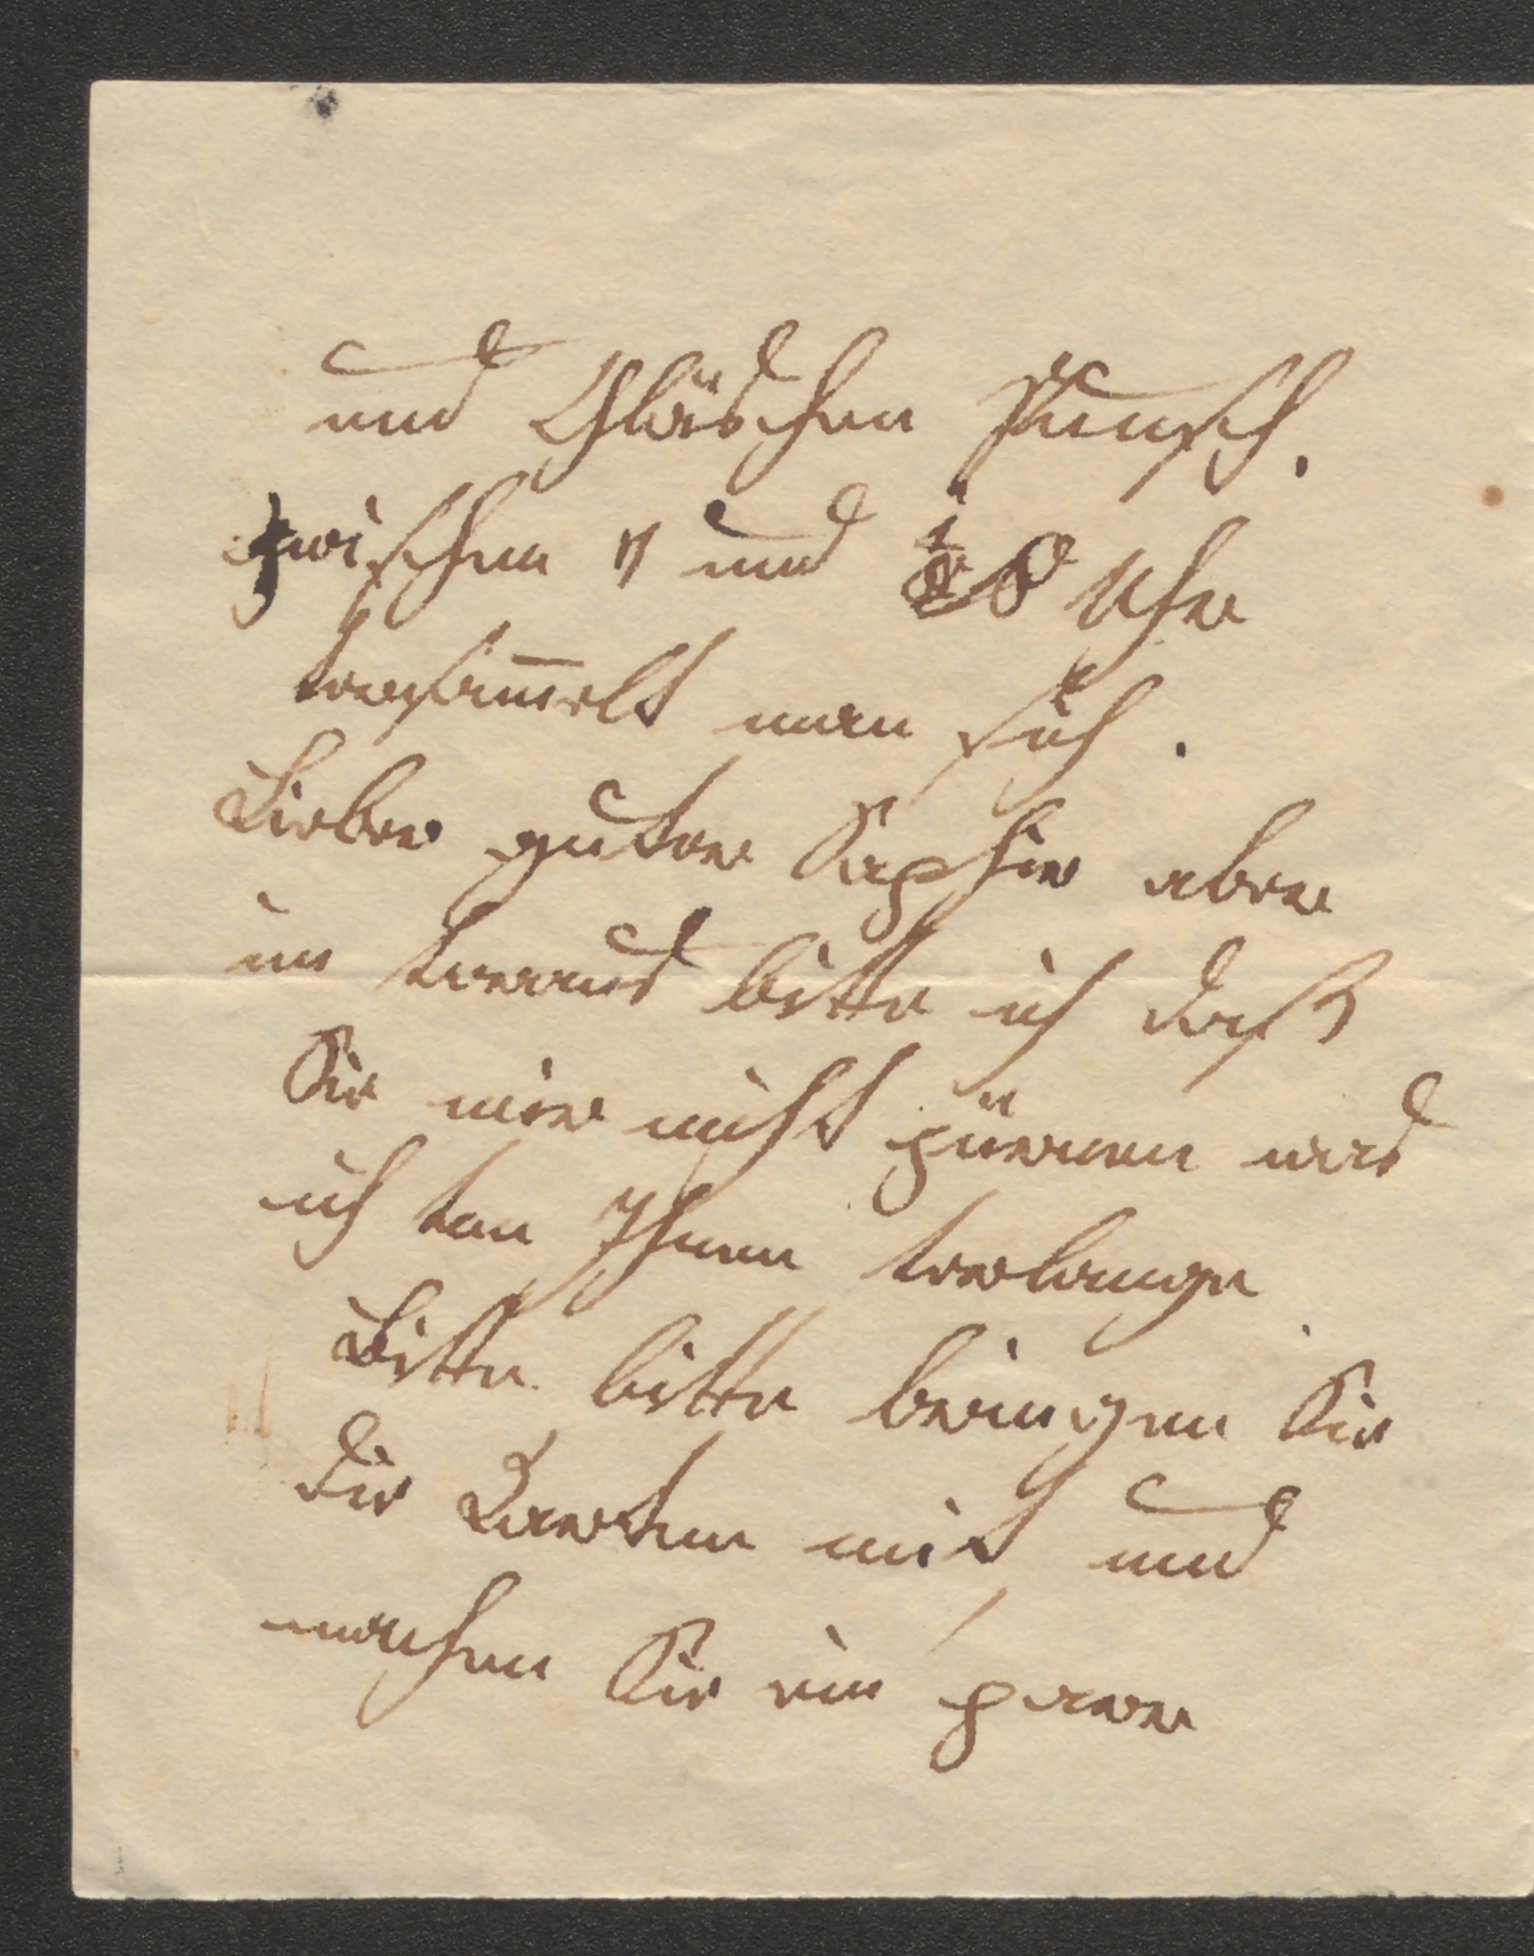 und Gläschen Punsch.
zwischen 7 und ½ 8 Uhr
versam̅elt man sich.
Lieber guter Saphir aber
im voraus bitte ich daß
Sie mir nicht zürnen was
ich von Ihnen verlange
Bitte bitte bringen Sie
die Karten mit und
machen Sie ein paar